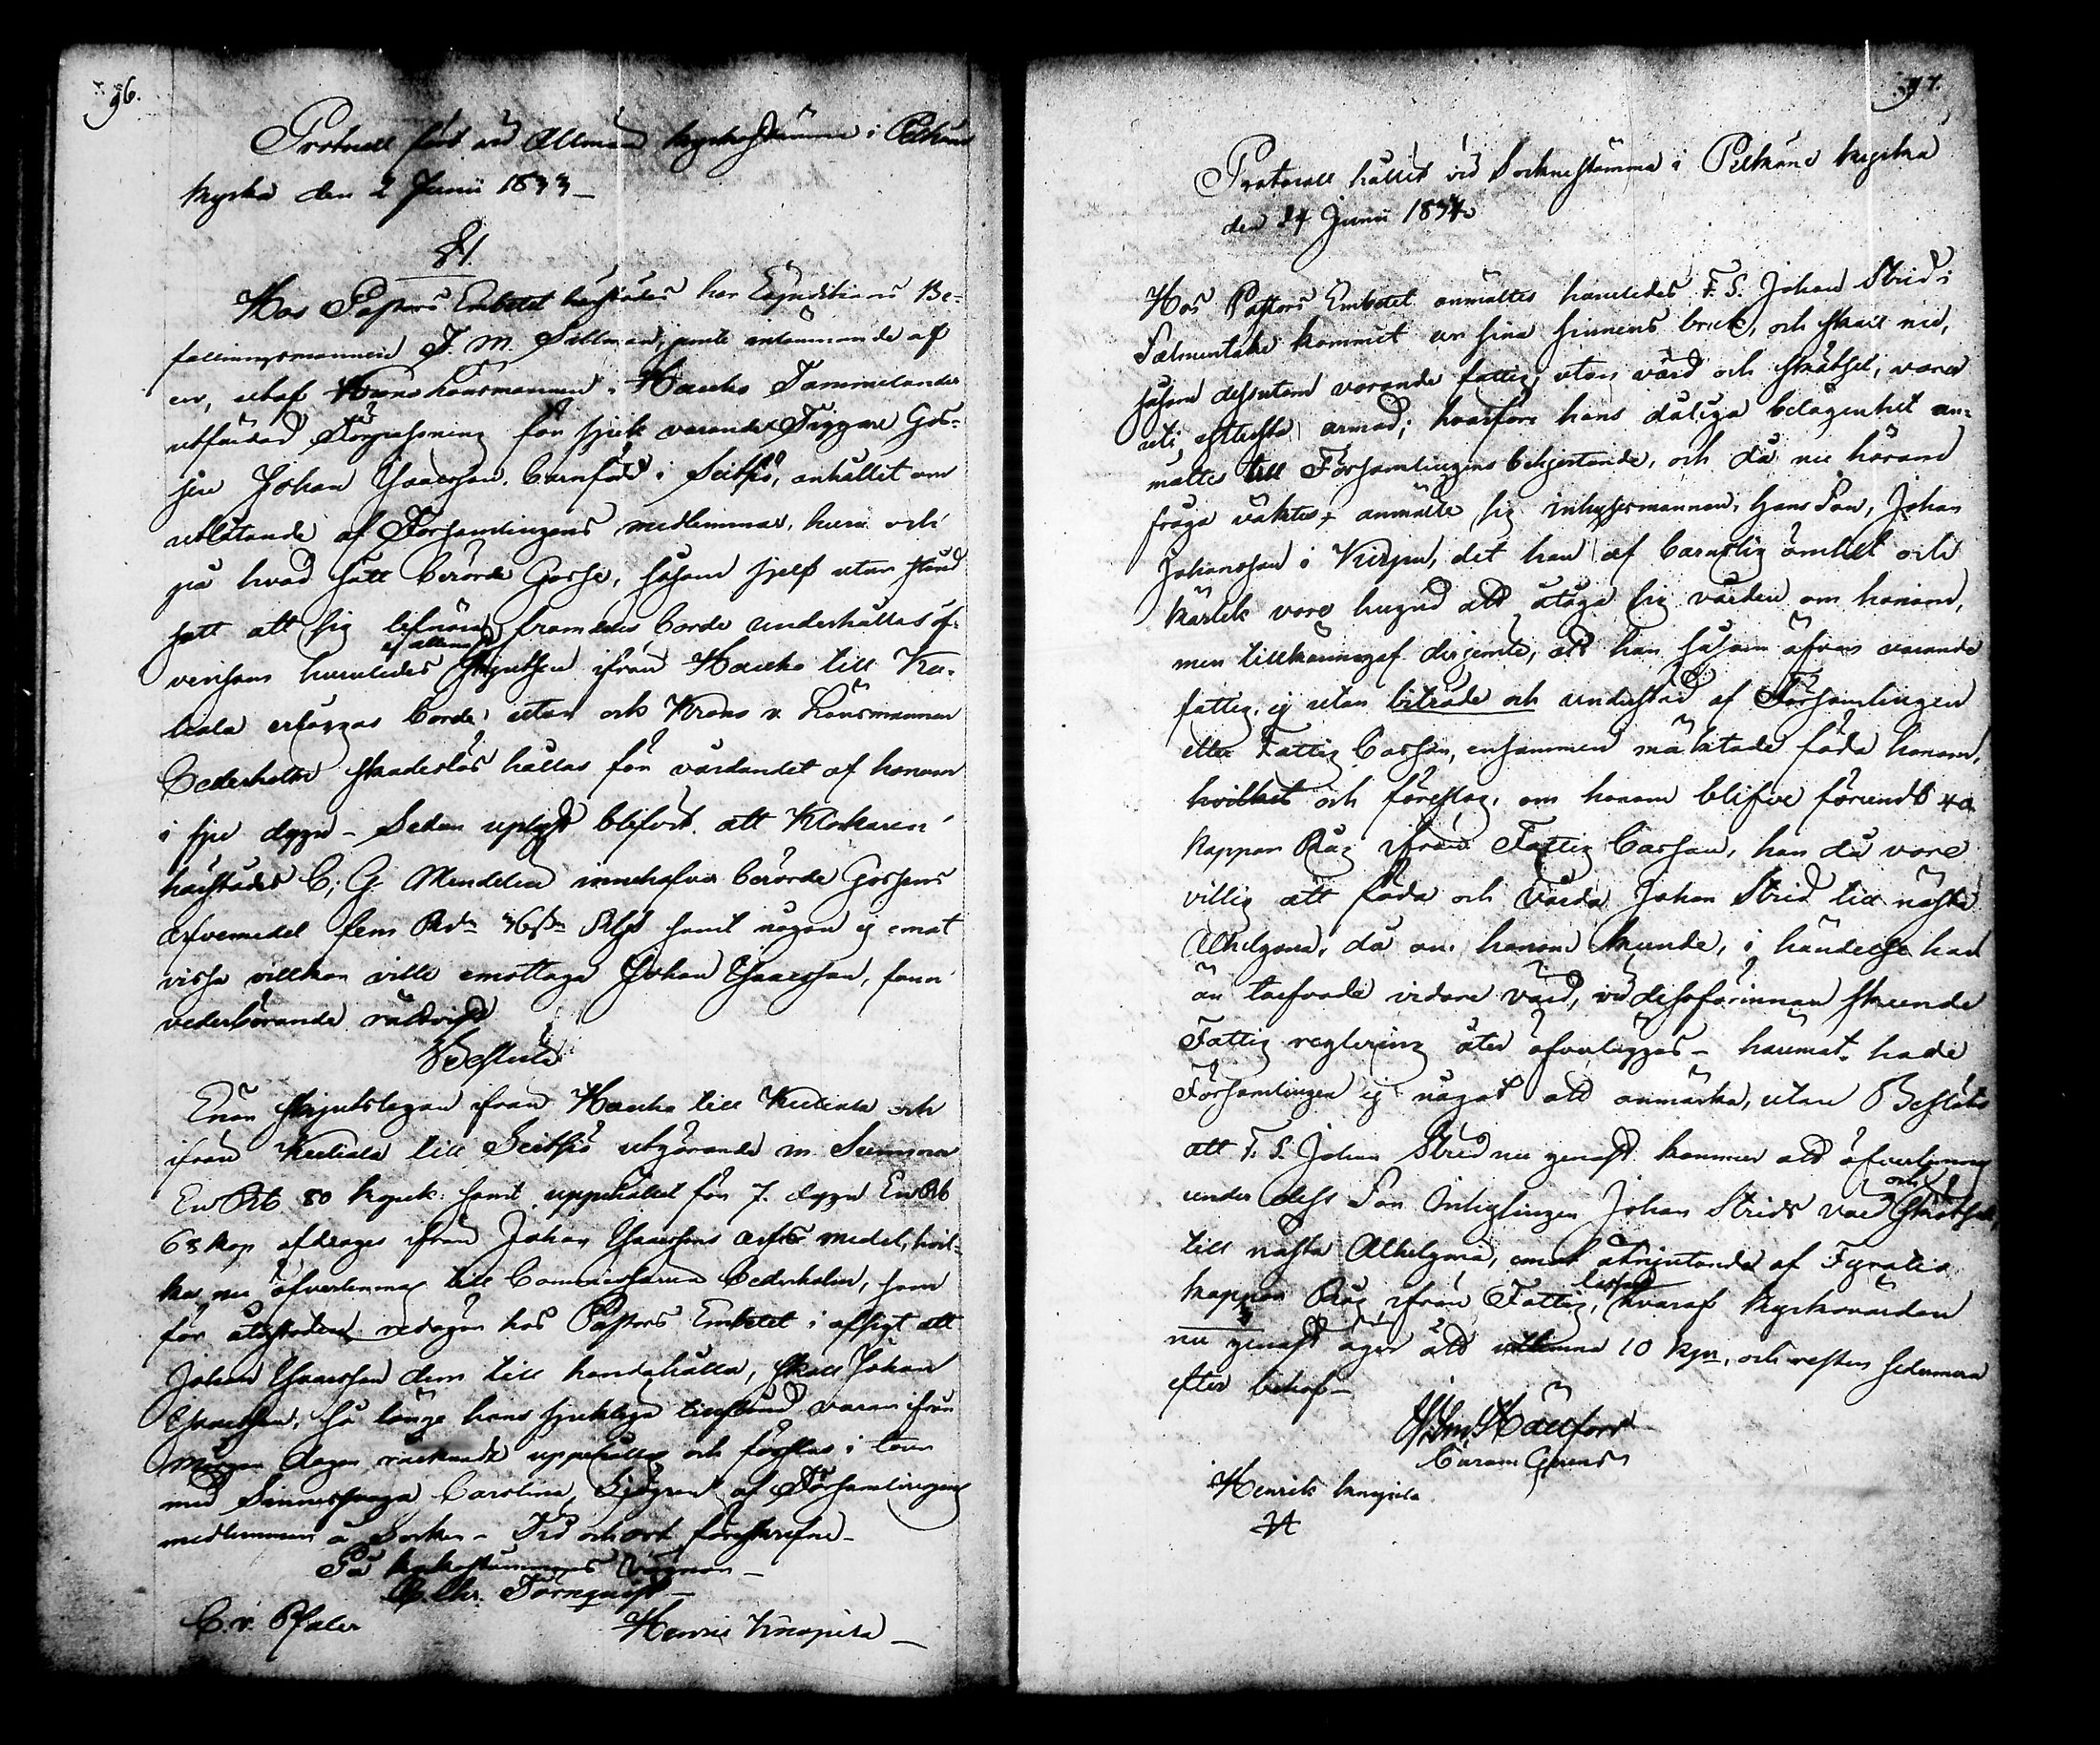 96.
Protocoll fördt vid Allmän kyrkostämma i Pelkäne
kyrka den 2 Junii 1833 –
§ 1.
Hos Pastors Embetet härstädes har Expeditions Be-
fallningsmannen J. M. Sellman, jemte insännande af
en, utaf Krono Länsmannen i Hauho Tammelander
utfärdad Förpassning för sjuk varande Tiggare Gos-
sen Johan Isaacsson, barnfödd i Seitsiö, anhållit om
utlåtande af Församlingens medlemmar, huru och
på hvad sätt berörde Gosse, såsom sjelf utan stånd
satt att sig lifnära, framdeles borde underhållas äf-
vensom huruledes Skjutsen ifrån Hauho till Ku-
hala ersättas borde, utan ock Krono v. Länsmannen
Cederholm skadeslös hållas för vårdandet af honom
i sju dygn – Sedan uplyst blifvit att Klockaren
härstädes C. G. Mendelin innehafva berörde Gossens
arfvemedel fem Rd 36 s. Rgs samt någon ej emot
vissa villkor ville emottaga Johan Isaacsson, fann
vederbörande rättvist
Besluta
Enär skjutslegan ifrån Hauho till Kuliala och
ifrån Kuliala till Seitsiö utgörande in Summa
En Rb 80 kopek samt uppehället för 7 dygn En Rb
68 kop afdrages ifrån Johan Isaacssons arfve medel, hvil-
ka nu öfverlemnas till Commissarien Cederholm, som
för återstoden redogör hos Pastors Embetet i afsigt att
Johan Isaacsson dem till handahålla, skall Johan
Isaacsson, så länge hans sjukliga tillstånd varar ifrån
Morgon dagen räknadt uppehållas och forslas i tour
med Sinnessvaga Carolina Sjögren af Församlingens
medlemmar å Socken – Tid och ort föreskrefne –
På kyrkostämmans vägnar –
Törnquist –
C. v. Pfaler
Henric Knapila –
97.
Protocoll hållit vid Sockne stämma i Pelkäne kyrka
den 24 Junii 1834.
Hos Pastors Embetet anmältes huruledes F. S. Johan Strid i
Salmentaka kommit un sina sinnens bruk, och skall nu,
såsom dessutom varande fattig, utan vård och skötsel, vara
uti ytterst armod; hvarföre hans dåliga belägenhet an-
mältes till Församlingens behjertande, och då nu härom
fråga väktes, anmälte sig Inhysesmannen, hans Son, Johan
Johansson i Kurpu, det han af barnslig ömhet och
kärlek vore hugad att åtaga sig vården om honom,
men tillkännagaf derjemte, att han såsom äfven varande
fattig, ej utan biträde och understöd af Församlingen
eller Fattig Cassan, ensammen mäktade föda honom,
hvilket och föreslog, om honom blifve förundt 40
kappar Råg ifrån Fattig Cassan, han då vore
villig att föda och vårda Johan Strid till nästa
Alhelgona, då om honom kunde, i händelse han
än tarfvade vidare vård, vid dessförinnan skeende
Fattig reglering åter öfverläggas – häremot hade
Församlingen ej något att anmärka, utan Beslöts
att F. S. Johan Strid nu genast kommer att öfverlemnas
under dess Son Inhysingen Johan Strids vård och skötsel
till nästa Alhelgona, emot åtnjutande af Fyratio
kappar Råg ifrån Fattig, hvaraf Kyrkovärden
nu genast äger att utlemna 10 kpr, och resten sedermera
efter behof –
Hällfors
Henrik Knapila